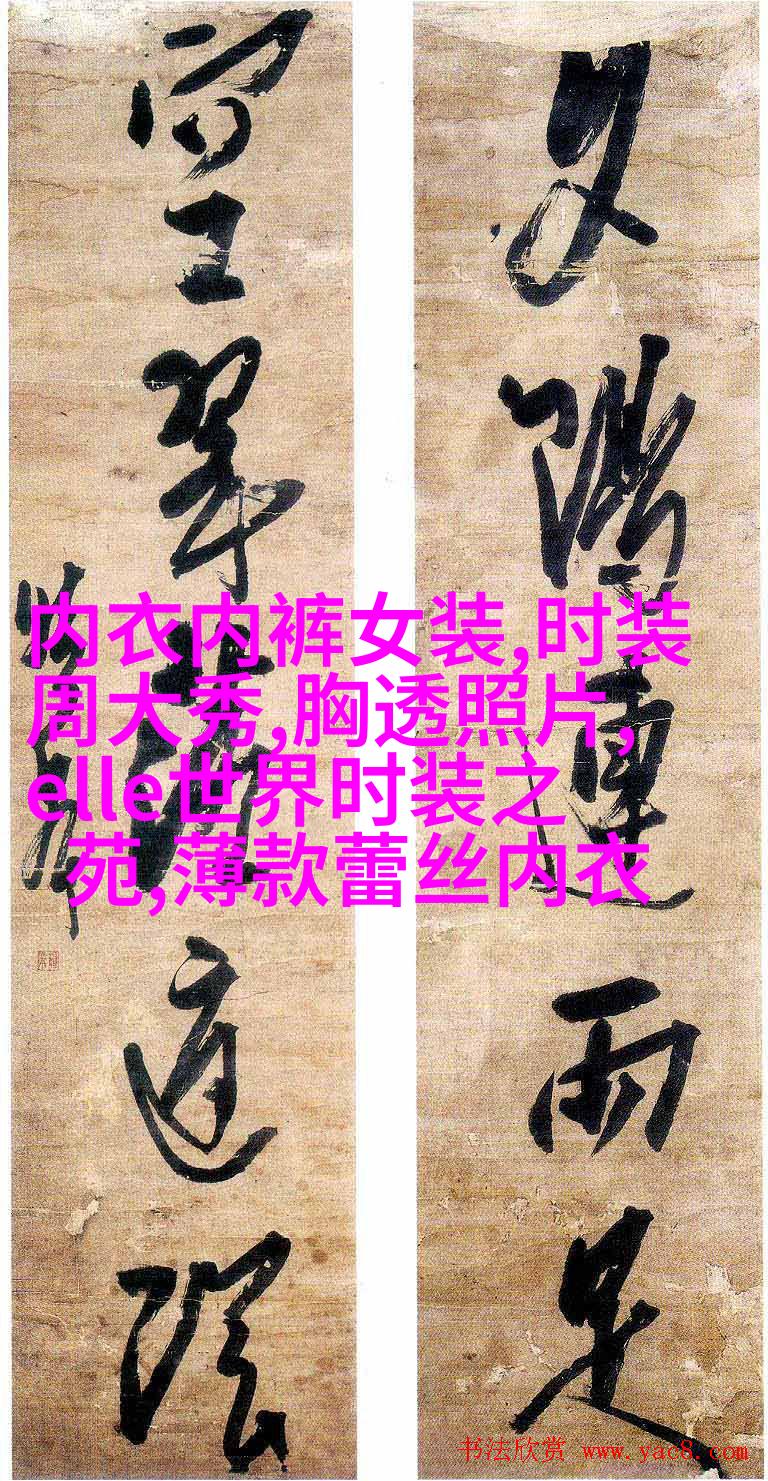 夕陽連雨足
空翠落庭陰
内衣内裤女装,时装
周大秀,胸透照片,
elle世界时装之
苑,薄款蕾丝内衣
书法欣赏 www.yac8.com